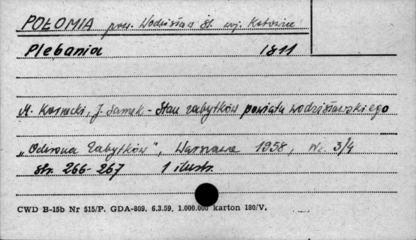 POŁOMIA pow. Wodzisław Śl. woj. Katowice
Plebania 1811
H. Kornecki, J. Samek - Stan zabytków powiatu wodzisławskiego
"Ochrona Zabytków", Warszawa 1958, Nr. 3/4
str. 266-267 1 ilustr.
CWD B-15b Nr 515/P. GDA-809. 6.3.59. 1.000.000 karton 180/V.